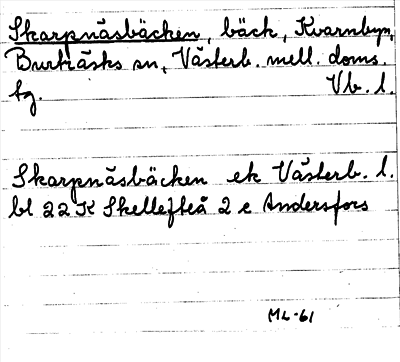 Skarpnäsbäcken, bäck, Kvarnbyn,
Burträsks sn, Västerb. mell. doms.
tg. Vb. l.
Skarpnäsbäcken ek Västerb. l.
bl 22 K Skellefteå 2 e Andersfors
ML-61